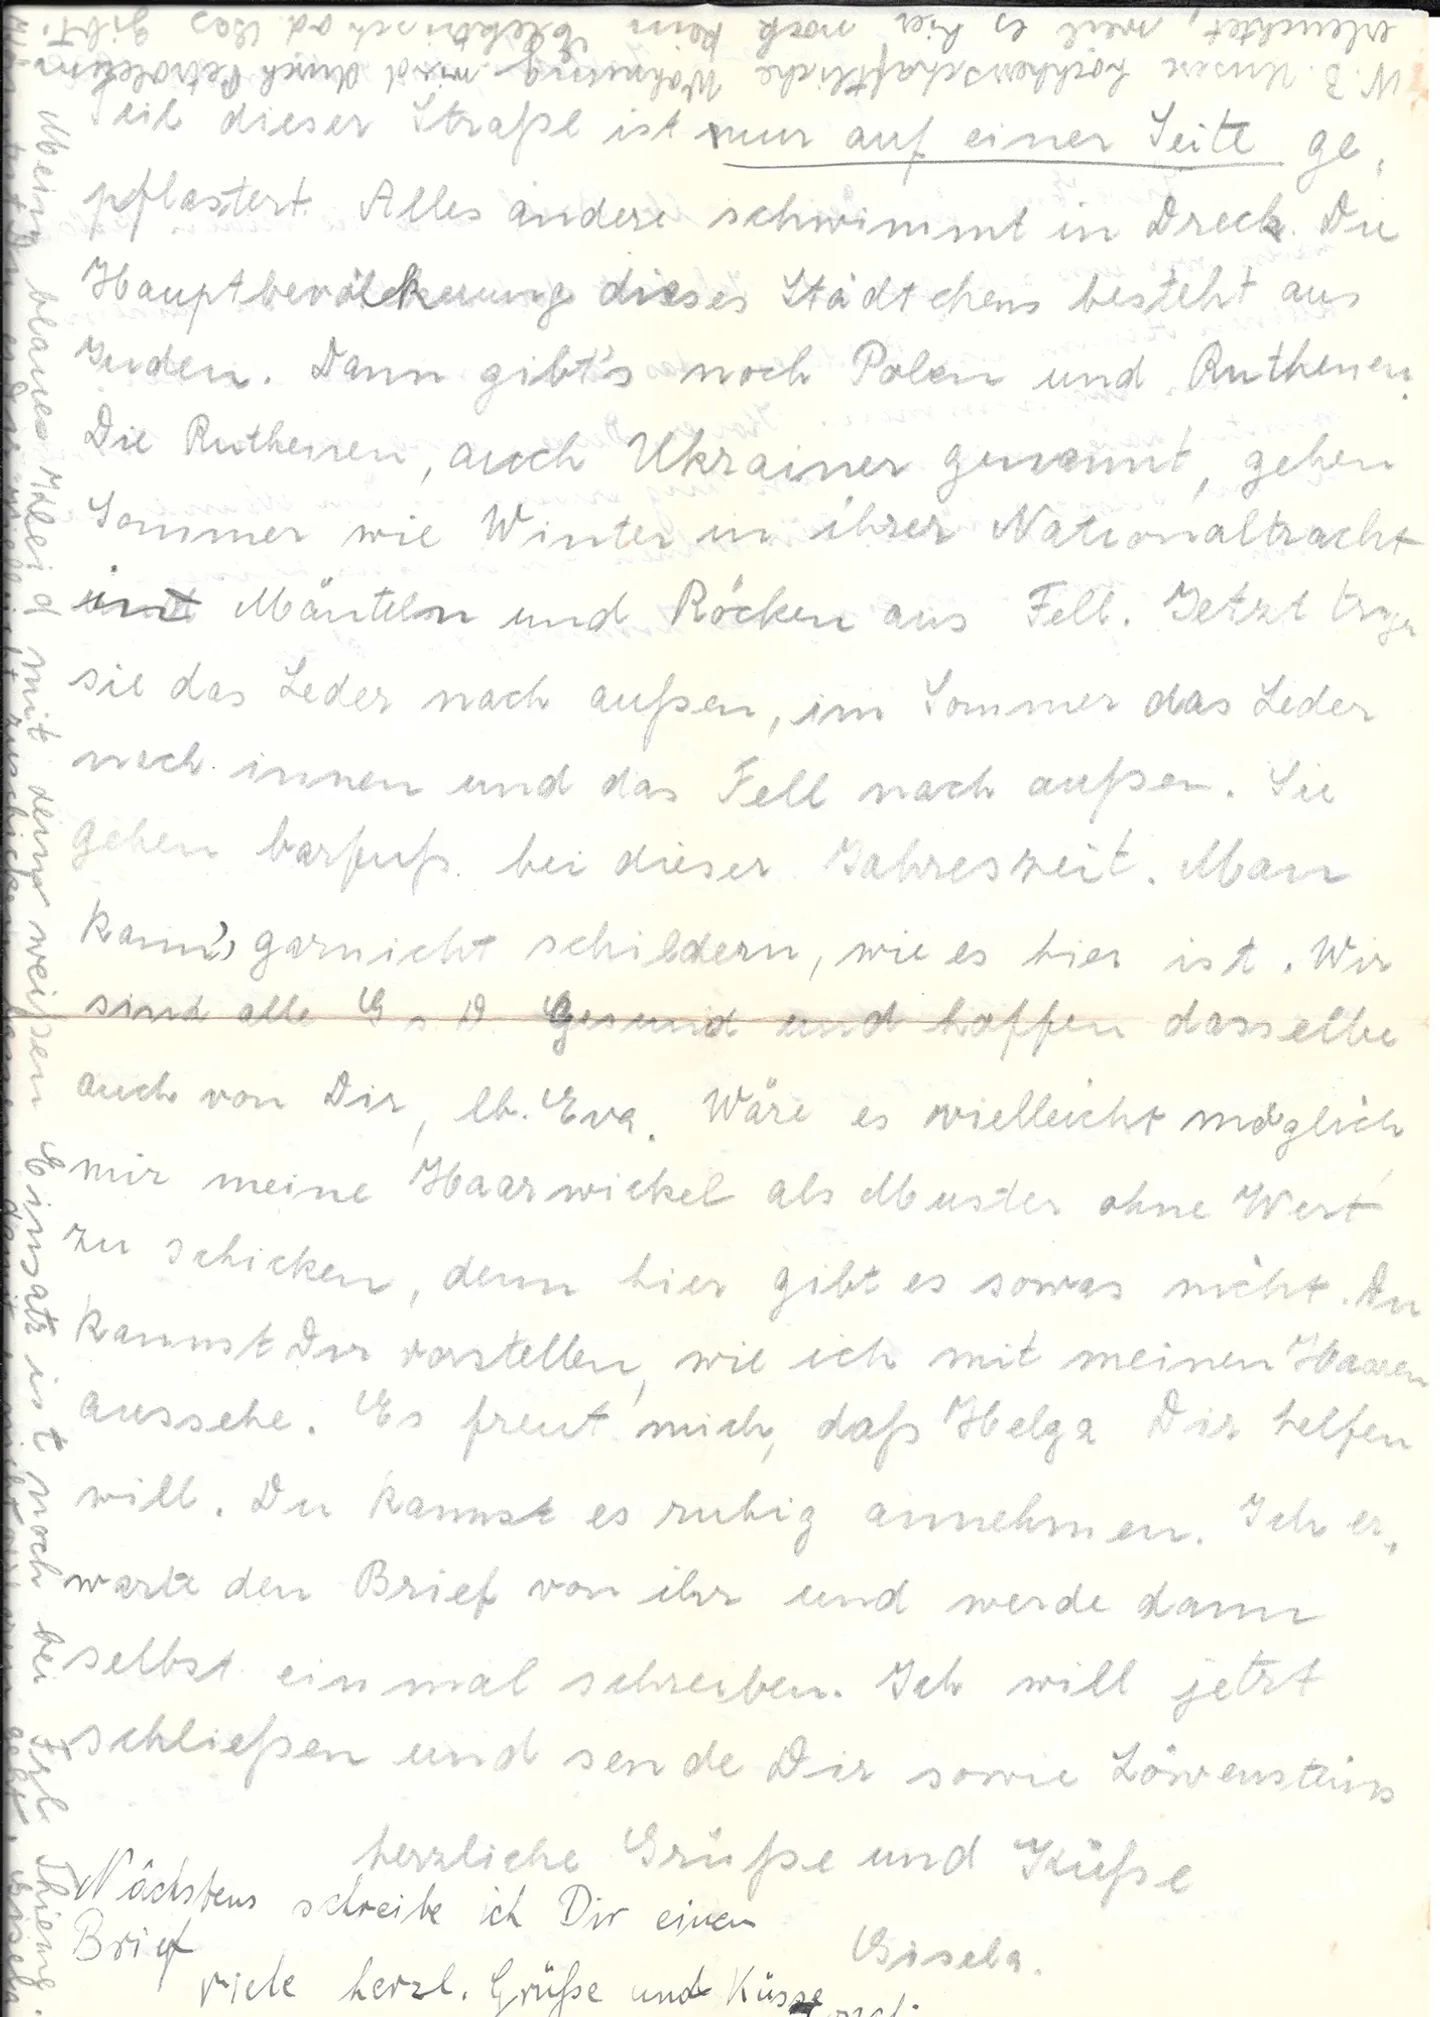 Teil dieser Straße ist nur auf einer Seite ge,
pflastert. Alles andere schwimmt in Dreck. Die
Hauptbevölkerung dieses Städtchens besteht aus
Juden. Dann gibt's noch Polen und Ruthenen.
Die Ruthenen, auch Ukrainer genannt, gehen
Sommer wie Winter in ihrer Nationaltracht
mit Mänteln und Röcken aus Fell. Jetzt tragen
sie das Leder nach außen, im Sommer das Leder
nach innen und das Fell nach außen. Sie
gehen barfuß bei dieser Jahreszeit. Man
kann's garnicht schildern, wie es hier ist. Wir
sind alle G s D Gesund und hoffen dasselbe
auch von Dir, lb. Eva. Wäre es vielleicht möglich
mir meine Haarwickel als Muster ohne Wert
zu schicken, denn hier gibt es sowas nicht. Du
kannst Dir vorstellen, wie ich mit meinen Haaren
aussehe. Es freut mich, daß Helga Dir helfen
will. Du kannst es ruhig annehmen. Ich er,
warte den Brief von ihr und werde dann
selbst einmal schreiben. Ich will jetzt
schließen und sende Dir sowie Löwensteins
herzliche Grüße und Küße
Gisela.
Nächstens schreibe ich Dir einen
Brief
viele herzl. Grüße und Küsse
N. B. Unsere hochherrschaftliche Wohnung wird durch Petroleum
erleuchtet, weil es hier noch kein Elektrisch od. Gas gibt.
Mein blaues Kleid mit dem weißen Einsatz ist noch bei Frl. Thieme.
zuschicken lassen, damit es nicht verloren geht. Gisela